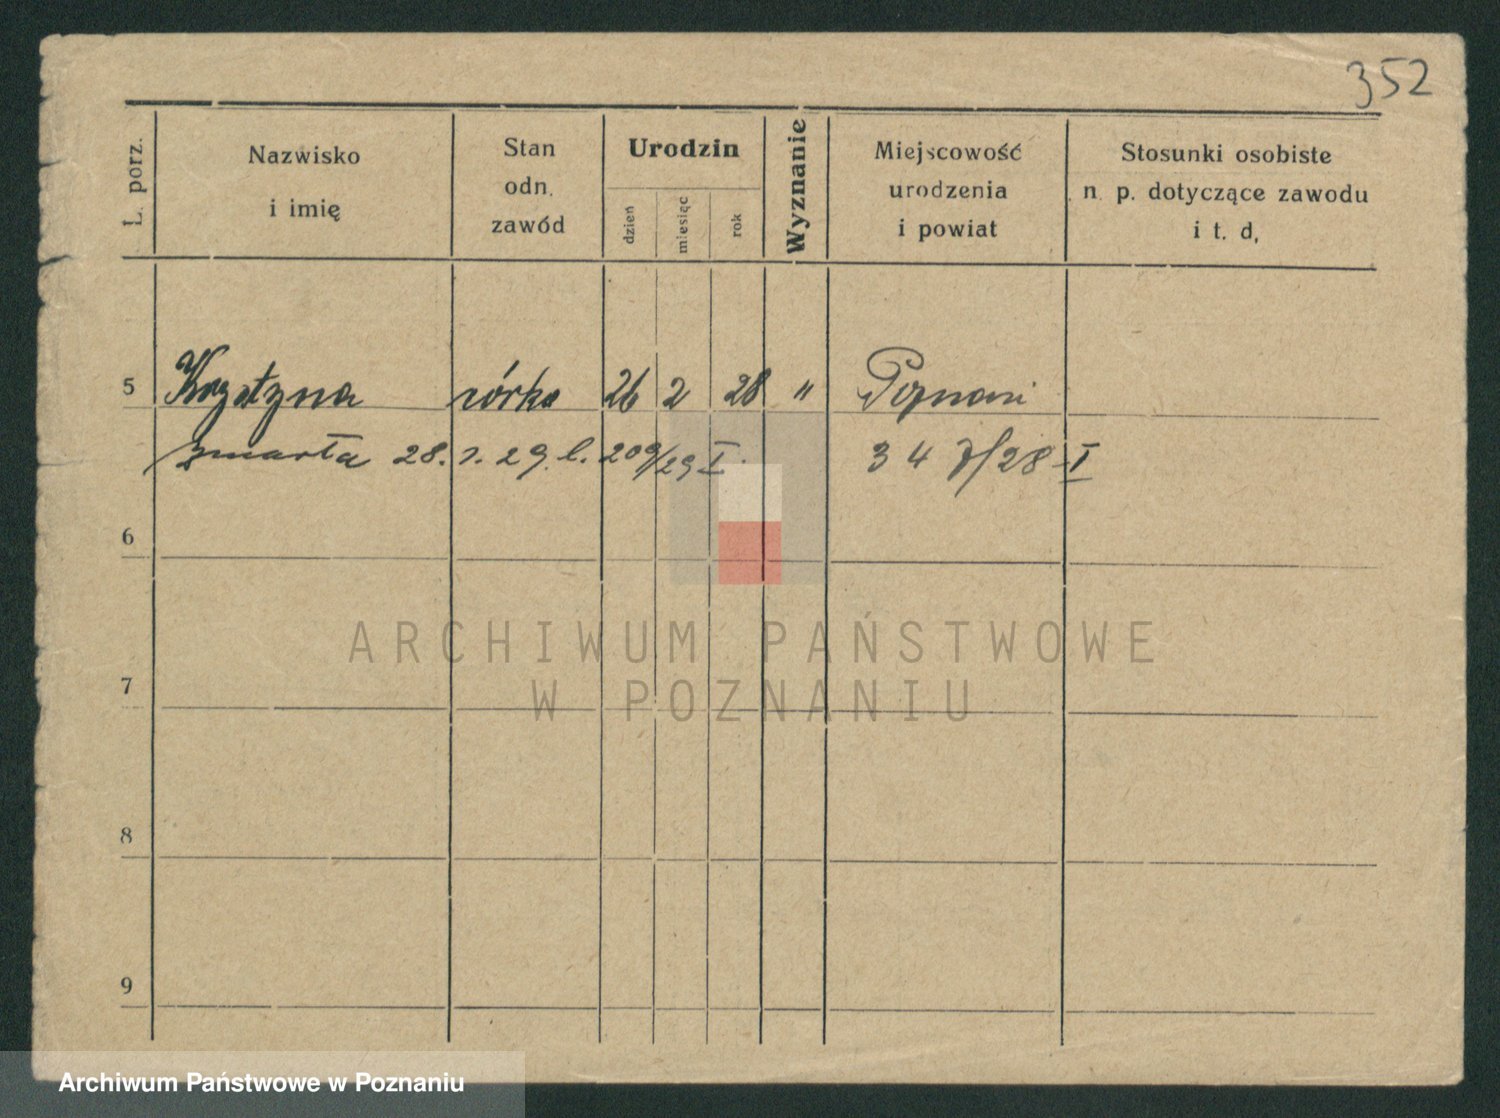 352
L. porz.
Nazwisko
i imię
Stan
odn.
zawód
Urodzin
dzień
miesiąc
rok
Wyznanie
Miejscowość
urodzenia
i powiat
Stosunki osobiste
n. p. dotyczące zawodu
i t. d,
5 Krystyna córka 26 2 28 " Poznań
zmarła 28. 2. 29. l. 209/29 I. 347/28 I
6
ARCHIWUM PAŃSTWOWE
W POZNANIU
7
8
9
Archiwum Państwowe w Poznaniu